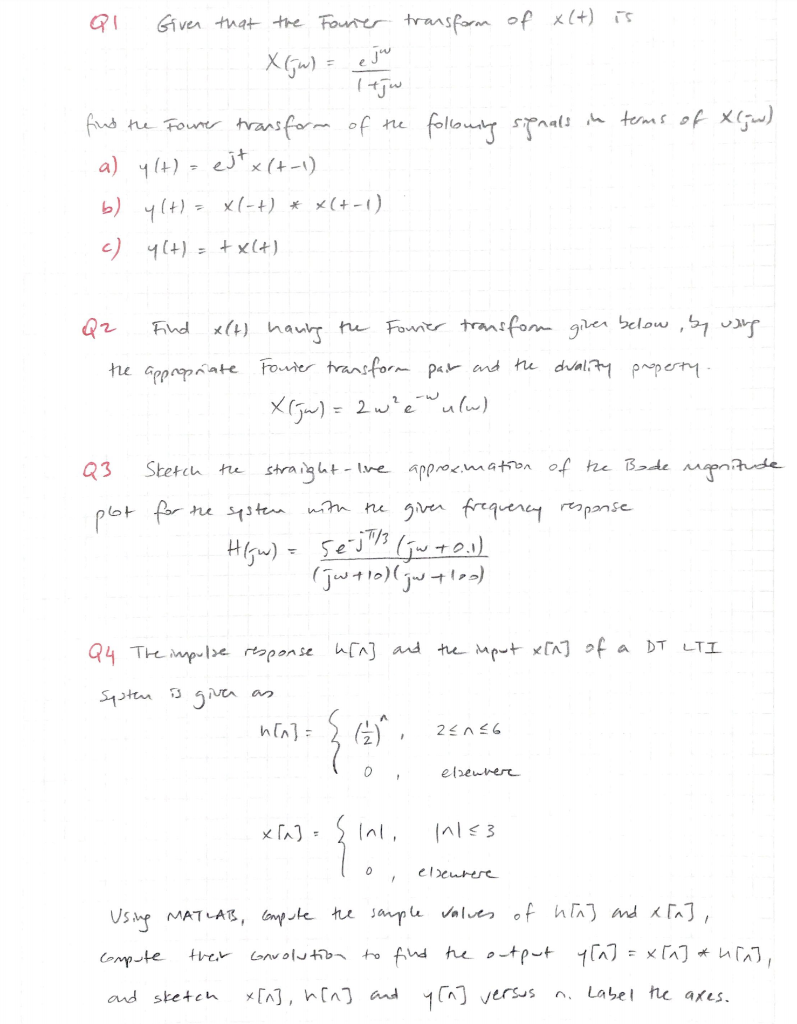 Q1 Given that the Fourier transform of x(t) is
X(jw) = e^{jw} / (1+jw)
find the Fourier transform of the following signals in terms of X(jw)
a) y(t) = e^{jt} x(t-1)
b) y(t) = x(-t) * x(t-1)
c) y(t) = t x(t)
Q2 Find x(t) having the Fourier transform given below, by using
the appropriate Fourier transform pair and the duality property.
X(jw) = 2w² e^{-w} u(w)
Q3 Sketch the straight-line approximation of the Bode magnitude
plot for the system with the given frequency response
H(jw) = 5e^{-jπ/3} (jw+0.1) / (jw+10)(jw+100)
Q4 The impulse response h[n] and the input x[n] of a DT LTI
system is given as
h[n] = { (1/2)^n, 2≤n≤6
0, elsewhere
x[n] = { |n|, |n|≤3
0, elsewhere
Using MATLAB, compute the sample values of h[n] and x[n],
compute their convolution to find the output y[n] = x[n] * h[n],
and sketch x[n], h[n] and y[n] versus n. Label the axes.